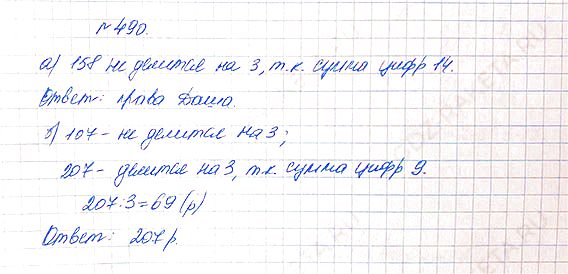 №490.
а) 158 не делится на 3, т.к. сумма цифр 14.
Ответ: права Даша.
б) 107 - не делится на 3;
207 - делится на 3, т.к. сумма цифр 9.
207:3=69 (р)
Ответ: 207 р.